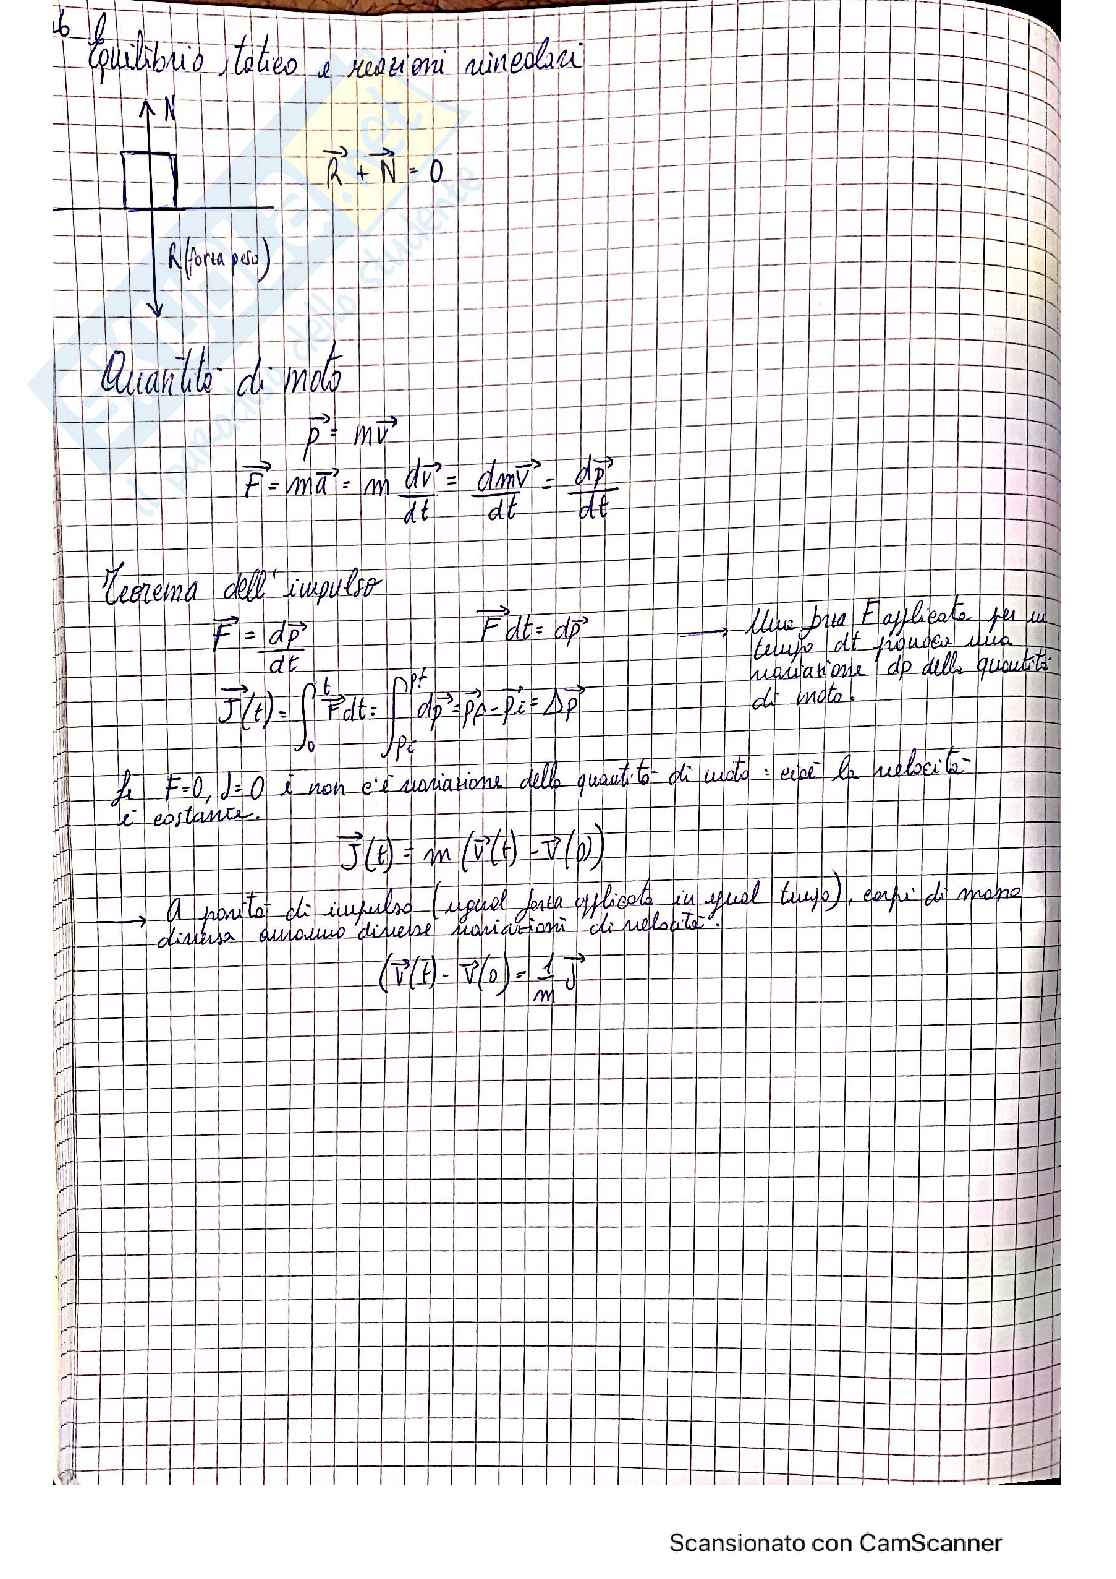 Equilibrio statico e reazioni vincolari
N
R⃗ + N⃗ = 0
R (forza peso)
Quantità di moto
p⃗ = mv⃗
F⃗ = ma⃗ = m dv⃗/dt = dmv⃗/dt = dp⃗/dt
Teorema dell'impulso
F⃗ = dp⃗/dt F⃗dt = dp⃗ → Una forza F applicata per un
tempo dt provoca una
variazione dp della quantità
di moto.
J⃗(t) = ∫₀ᵗ F⃗dt = ∫_pi^pf dp⃗ = p⃗f - p⃗i = Δp⃗
Se F=0, J=0 e non c'è variazione della quantità di moto: cioè la velocità
è costante.
J⃗(t) = m (v⃗(t) - v⃗(0))
→ A parità di impulso (ugual forza applicata in ugual tempo), corpi di massa
diversa avranno diverse variazioni di velocità.
(v⃗(t) - v⃗(0) = 1/m J⃗
Scansionato con CamScanner